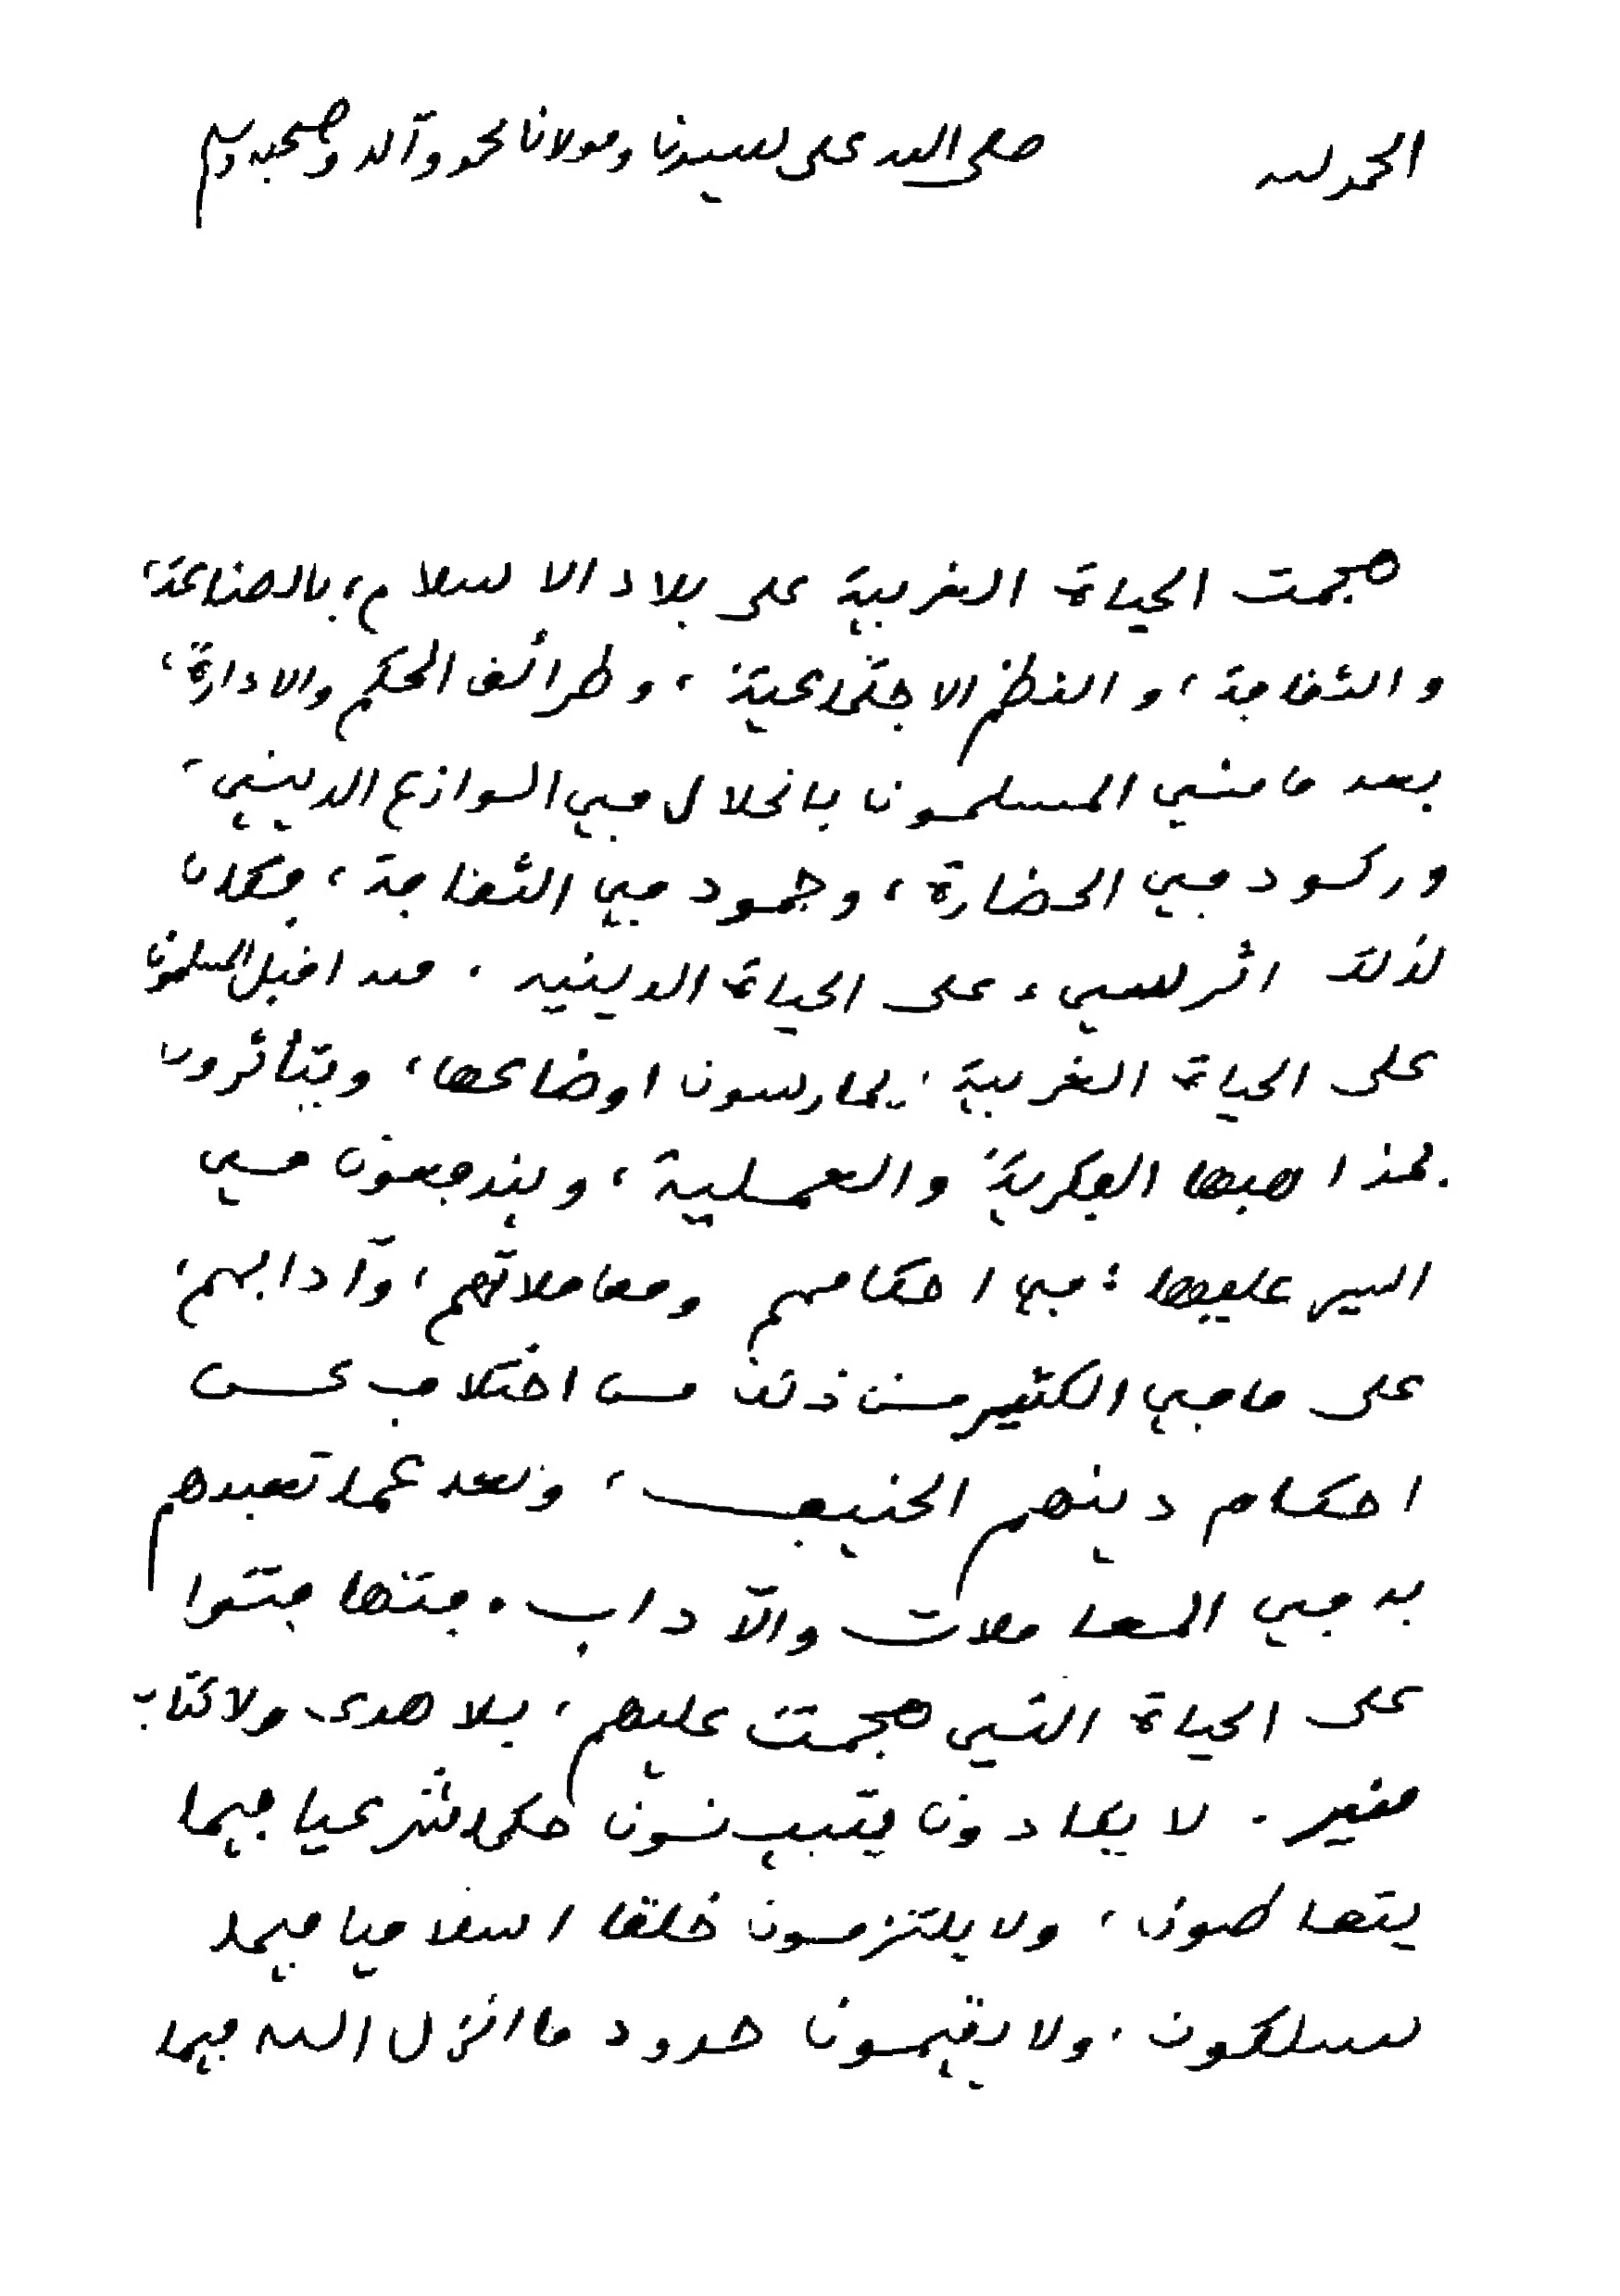 الحمد لله صلى الله على سيدنا ومولانا محمد وآله وصحبه وسلم
هجمت الحياة الغربية على بلاد الاسلام، بالصناعة،
والثقافة، والنظم الاجتماعية، وطرائق الحكم والادارة،
بعد ما مني المسلمون بانحلال في الوازع الديني،
وركود في الحضارة، وجمود في الثقافة، فكان
لذلك اثر سيء على الحياة الدينيه. فقد اقبل المسلمون
على الحياة الغربية: يمارسون اوضاعها، ويتأثرون
بمذاهبها الفكرية والعملية، ويندفعون في
السير عليها: في احكامهم ومعاملاتهم، وآدابهم،
على ما في الكثير من ذلك من اختلاف عن
احكام دينهم الحنيف، وبعد عما تعبدهم
به في المعاملات والآداب. فتهافتوا
على الحياة التي هجمت عليهم، بلا هدى ولا كتاب
منير. لا يكادون يتبينون حكما شرعيا فيما
يتعاطون، ولا يلتزمون خلقا اسلاميا فيما
يسلكون، ولا يقيمون حدود ما انزل الله فيما